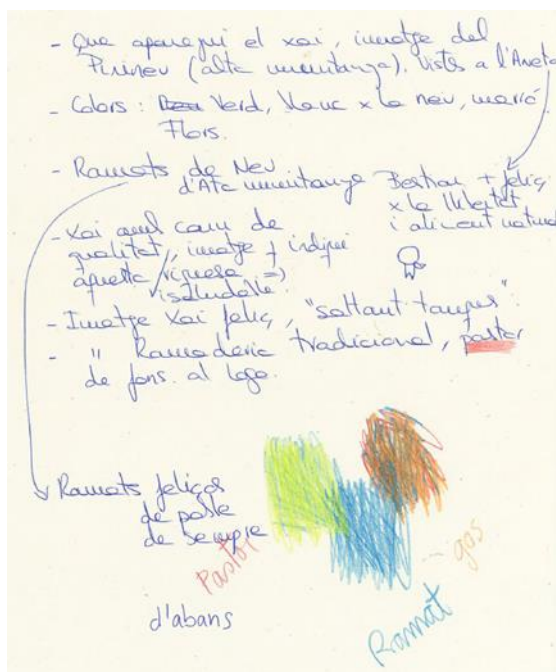 - Que aparegui el xai, imatge del
Pirineu (alta muntanya). Vistes a l'Aneto
- Colors: Verd, blanc x la neu, marró
Flors.
- Ramats de Neu
d'Alta muntanya
Bestiar + feliç
x la llibertat
i aliment natural
- Xai amb carn de
qualitat, imatge q indiqui
aquesta riquesa =)
i saludable.
- Imatge Xai feliç, "saltant tanques".
- " Ramaderia tradicional, pastor
de fons. al logo.
Ramats feliços
de poble
de sempre
Pastor
gos
Ramat
d'abans